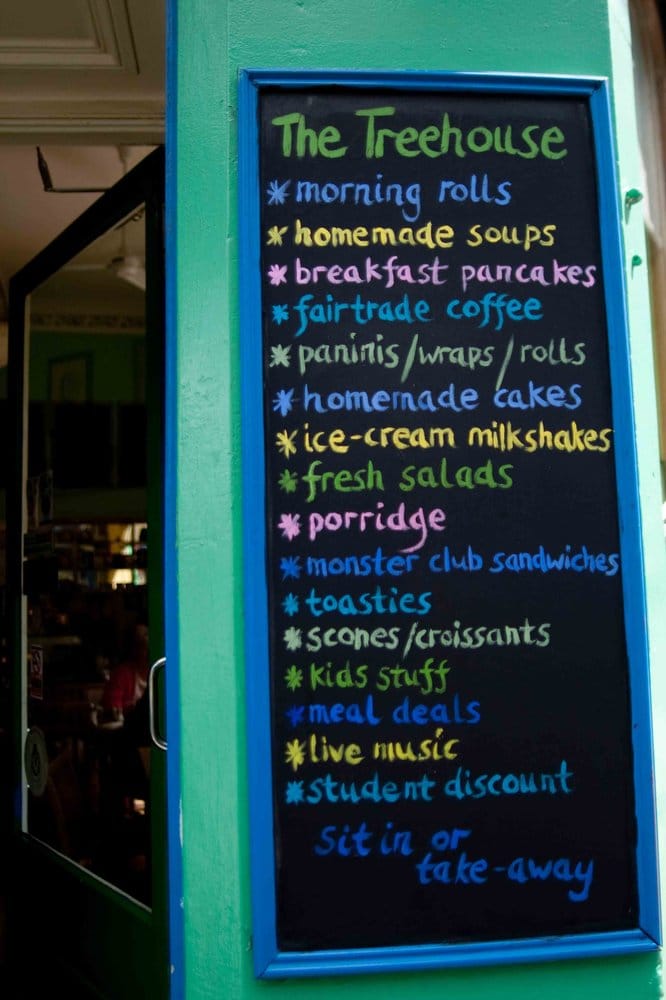 The Treehouse
* morning rolls
* homemade soups
* breakfast pancakes
* fairtrade coffee
* paninis/wraps/rolls
* homemade cakes
* ice-cream milkshakes
* fresh salads
* porridge
* monster club sandwiches
* toasties
* scones/croissants
* kids stuff
* meal deals
* live music
* student discount
sit in or
take-away